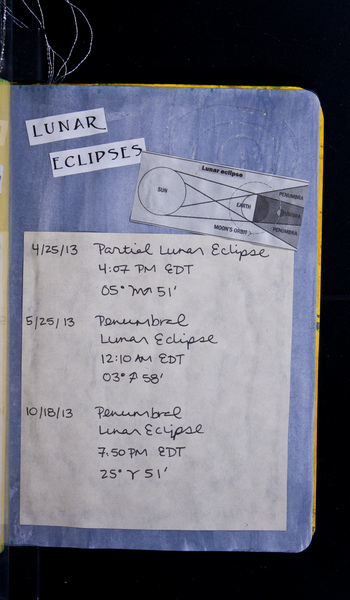 LUNAR
ECLIPSES
Lunar eclipse
SUN
EARTH
PENUMBRA
UMBRA
PENUMBRA
MOON'S ORBIT
4/25/13 Partial Lunar Eclipse
4:07 PM EDT
05° ♏ 51'
5/25/13 Penumbral
Lunar Eclipse
12:10 AM EDT
03° ♐ 58'
10/18/13 Penumbral
Lunar Eclipse
7:50 PM EDT
25° ♈ 51'